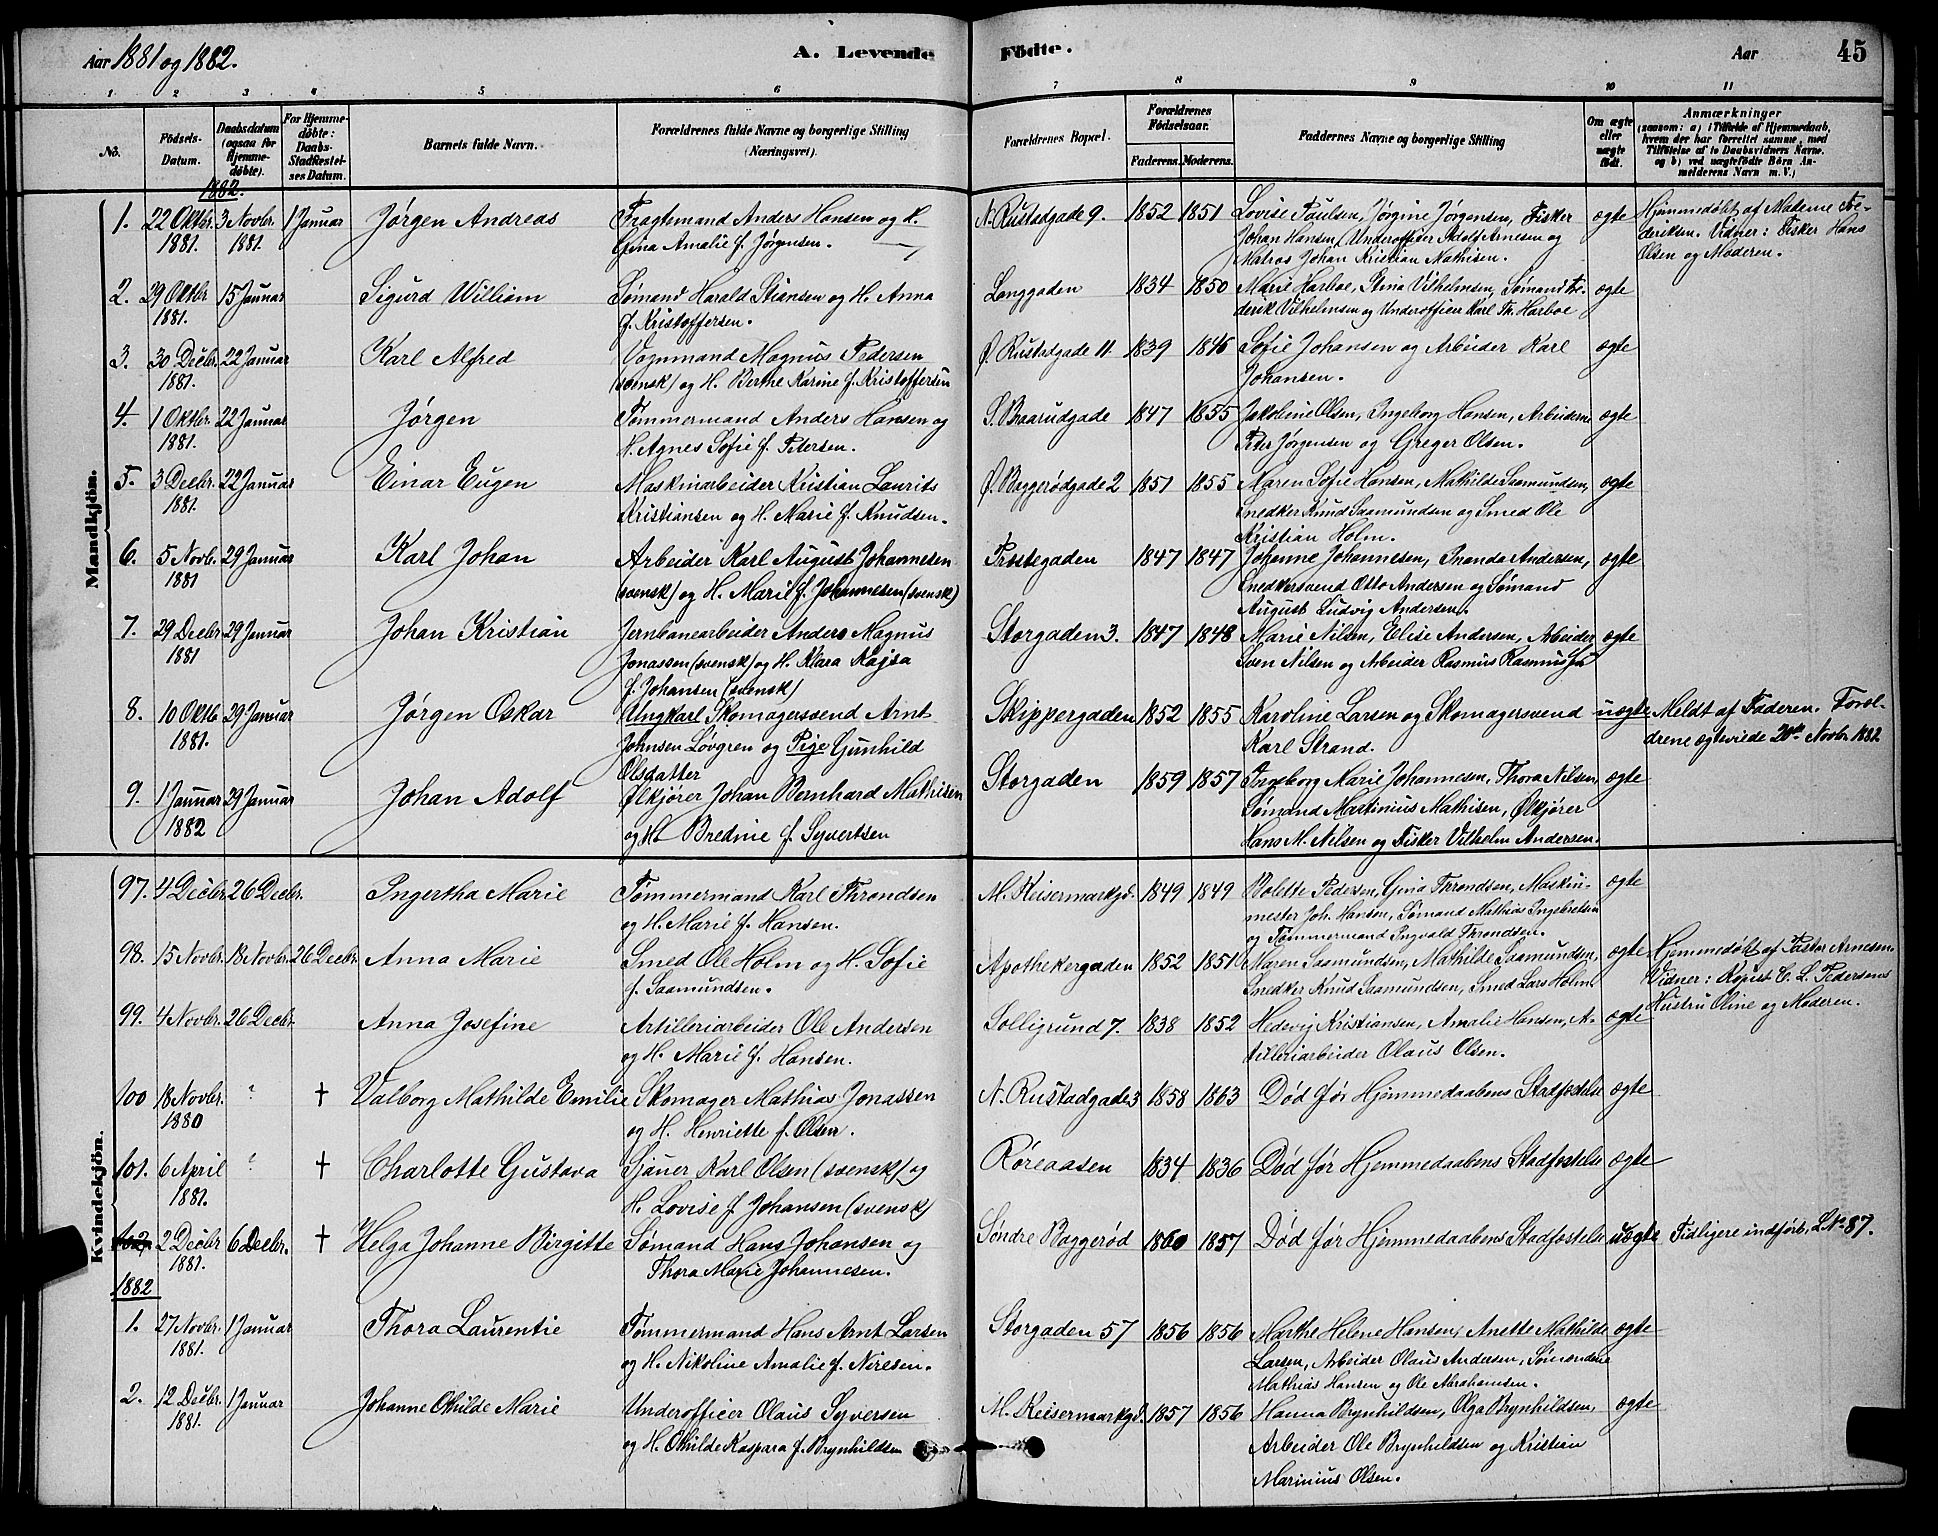 Aar 1881 og 1882. A. Levende Födte. Aar 45
1 2 3 4 5 6 7 8 9 10 11
No. Födsels-Datum. Daabsdatum (ogsaa for Hjemmedöbte). For Hjemmedöbte: Daabs-Stadfæstelses Datum. Barnets fulde Navn. Forældrenes fulde Navne og borgerlige Stilling (Næringsvei). Forældrenes Bopæl. Forældrenes Födselsaar. Faderens. Moderens. Faddernes Navne og borgerlige Stilling Om ægte eller uægte födt. Anmærkninger
(saasom: a) i Tilfælde af Hjemmedaab, hvem der har forrettet samme, med Tilföielse af to Daabsvidners Navne, og b) ved uægtefödte Börn Anmelderens Navn m. V.)
1882.
Mandkjön.
1. 22 Oktbr. 3 Novbr. 1 Januar Jørgen Andreas Fragtemand Anders Hansen og H. N. Rustadgade 9. 1852 1851 Lovise Paulsen, Jørgine Jørgensen, Fisker ægte Hjemmedøbt af Maderne Fre-
1881. 1881. Gina Amalie f. Jørgensen. Johan Hansen, Underofficer Adolf Arnesen og deriksen. Vidner: Fisker Hans
Matros Johan Kristian Mathisen. Olsen og Moderen.
2. 29 Oktbr 15 Januar Sigurd William Sømand Harald Stiansen og H. Anna Langgaden 1834 1850 Marie Harboe, Stina Vilhelmsen, Sømand Fre- ægte
1881. f. Kristoffersen. derik Vilhelmsen og Underofficer Karl Th. Harboe
3. 30 Decbr. 22 Januar Karl Alfred Vognmand Magnus Pedersen Ø. Rustadgade 11. 1839 1846 Sofie Johansen og Arbeider Karl ægte
1881. (svensk) og H. Berthe Karine f. Kristoffersen Johansen.
4. 1 Oktbr. 22 Januar Jørgen Tømmermand Anders Hansen og S. Baarudgade 1847 1855 Jakoline Olsen, Ingeborg Hansen, Arbeiderne ægte
1881. H. Agnes Sofie f. Petersen. Peder Jørgensen og Greger Olsen.
5. 3 Decbr. 22 Januar Einar Eugen Maskinarbeider Kristian Laurits Ø. Baggerødgade 2 1851 1855 Maren Sofie Hansen, Mathilde Saamundsen, ægte
1881. Kristiansen og H. Marie f. Knudsen. Snedker Knud Saamundsen og Smed Ole
Kristian Holm.
6. 5 Novb. 29 Januar Karl Johan Arbeider Karl August Johannesen Prestegaden 1847 1847 Johanne Johannesen, Ananda Andersen, ægte
1881 (svensk) og H. Marie f. Johannesen (svensk) Snedkersvend Otto Andersen og Sømand
August Ludvig Andersen.
7. 29 Decbr 29 Januar Johan Kristian Jernbanearbeider Anders Magnus Storgaden 3. 1847 1848 Marie Nilsen, Elise Andersen, Arbeider ægte
1881 Jonassen (svensk) og H. Klara Kajsa Sven Nilsen og Arbeider Rasmus Rasmussen
f. Johansen (svensk)
8. 10 Oktb 29 Januar Jørgen Oskar Ungkarl Skomagersvend Arnt Skippergaden 1852 1855 Karoline Larsen og Skomagersvend uægte Meldt af Faderen. Foræl-
1881. Johnsen Løvgren og Pige Gunhild Karl Strand. drene ægteviede 20de Novbr. 1882
Olsdatter
9. 1 Januar 29 Januar Johan Adolf Ølkjører Johan Bernhard Mathisen Storgaden 1859 1857 Ingeborg Marie Johannesen, Thora Nilsen, ægte
1882 og H. Bredine f. Syvertsen Sømand Martinius Mathisen, Ølkjører
Hans M. Nilsen og Fisker Vilhelm Andersen.
Kvindekjön.
97. 4 Decbr. 26 Decbr. Ingertha Marie Tømmermand Karl Throndsen M. Keisermarkgd. 1849 1849 Bolette Pedersen, Gina Throndsen, Maskin- ægte
og H. Marie f. Hansen. mester Joh. Hansen, Sømand Mathias Ingebretsen
og Tømmermand Ingvald Throndsen.
98. 15 Novbr. 18 Novbr. 26 Decbr. Anna Marie Smed Ole Holm og H. Sofie Apothekergaden 1852 1851 Maren Saamundsen, Mathilde Saamundsen, ægte Hjemmedøbt af Pastor Arnesen.
f. Saamundsen. Snedker Knud Saamundsen, Smed Lars Holm. Vidner: Kopist C. L. Pedersens
Hustru Oline og Moderen.
99. 4 Novbr. 26 Decbr. Anna Josefine Artilleriarbeider Ole Andersen Solligrund 7. 1838 1852 Hedevig Kristiansen, Amalie Hansen, A- ægte
og H. Marie f. Hansen. tilleriarbeider Olaus Olsen.
100 18 Novbr. ? † Valborg Mathilde Emilie Skomager Mathias Jonassen N. Rustadgade 3 1858 1863 Død før Hjemmedaabens Stadfæstelse ægte
1880 og H. Henriette f. Olsen.
101. 6 April ? † Charlotte Gustava Sjauer Karl Olsen (svensk) og Røreaasen 1834 1836 Død før Hjemmedaabens Stadfæstelse ægte
1881. H. Lovise f. Johansen (svensk)
102. 2 Decbr 6 Decbr. † Helga Johanne Birgitte Sømand Hans Johansen og Søndre Baggerød 1860 1857 Død før Hjemmedaabens Stadfæstelse uægte Tidligere indført, L. No 87.
1881. Thora Marie Johannesen.
1882
1. 27 Novbr. 1 Januar Thora Laurentie Tømmermand Hans Arnt Larsen Storgaden 57 1856 1856 Marthe Helene Hansen, Anette Mathilde ægte
1881. og H. Nikoline Amalie f. Nilsen. Larsen, Arbeider Olaus Andersen, Sømændene
Mathias Hansen og Ole Abrahamsen.
2. 12 Decbr. 1 Januar Johanne Othilde Marie Underofficer Olaus Syversen M. Keisermarkgd. 1857 1856 Hanna Brynhildsen, Olga Brynhildsen, ægte
1881. og H. Othilde Kaspara f. Brynhildsen Arbeider Ole Brynhildsen og Kristian
Marinius Olsen.